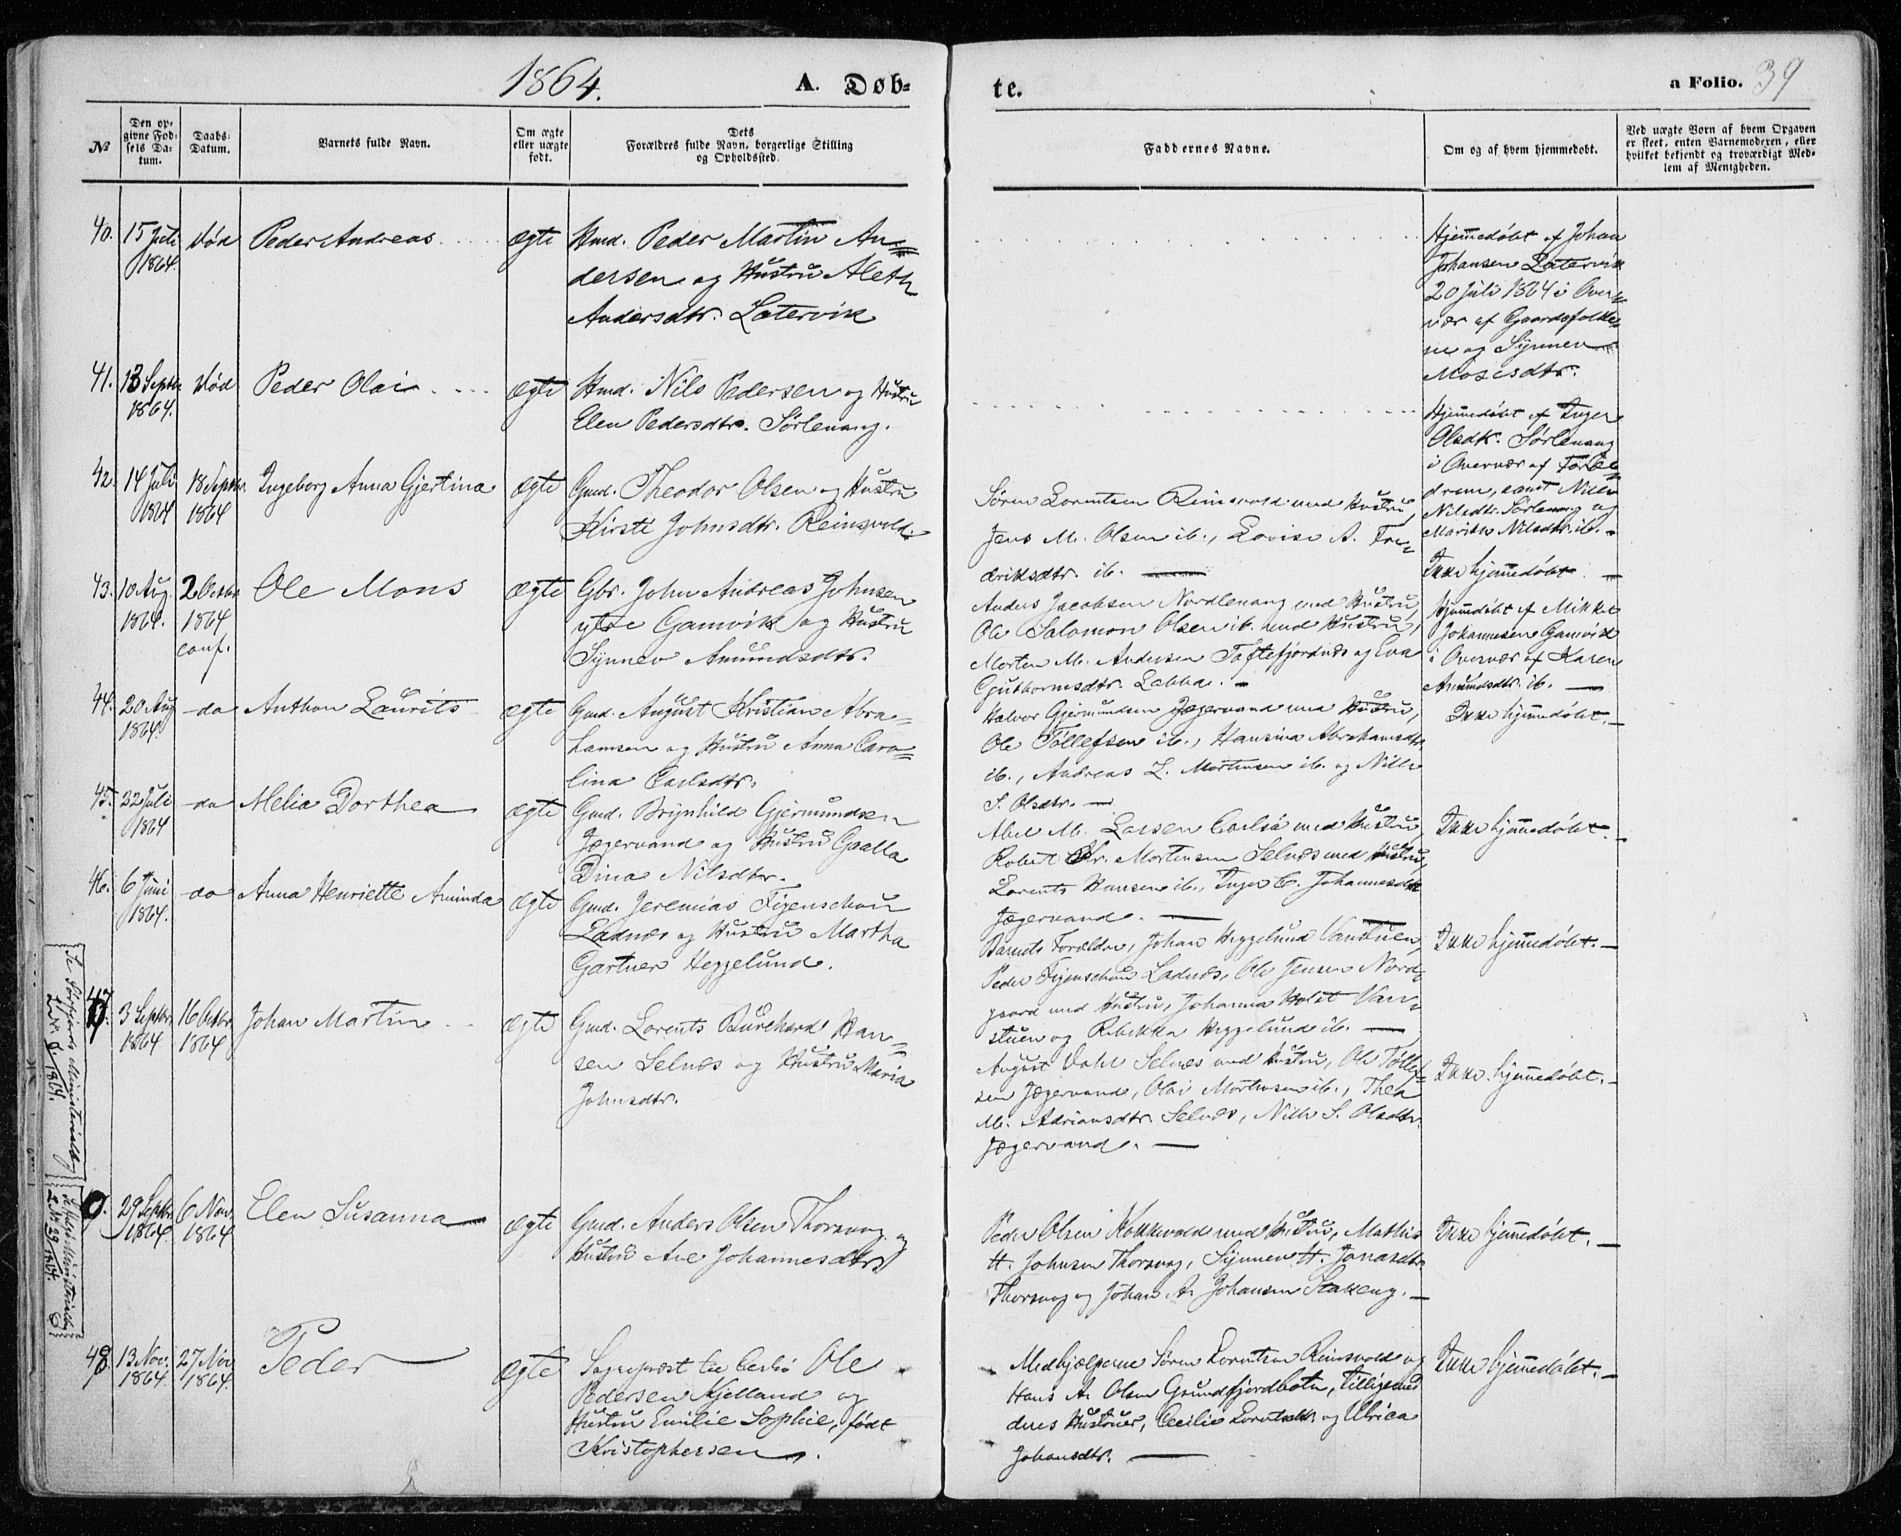 1864.
A. Døb-
te.
a Folio. 39
№
Den op-
givne Fød-
sels Da-
tum.
Daabs-
Datum.
Barnets fulde Navn.
Om ægte
eller uægte
født.
Dets
Forældres fulde Navn, borgerlige Stilling
og Opholdssted.
Faddernes Navne.
Om og af hvem hjemmedøbt.
Ved uægte Børn af hvem Opgaven
er skeet, enten Barnemoderen, eller
hvilket bekjendt og troværdigt Med-
lem af Menigheden.
40. 15 Juli død Peder Andreas ægte Hmd. Peder Martin An=
1864. dersen og Hustru Aleth
Andersdtr. Latervik
Hjemmedøbt af Johan
Johansen Latervik
20 Juli 1864 i Over-
vær af Gaardsfolke-
ne og Synnev
Mosisdtr.
41. 13 Septbr. død Peder Olai ægte Hmd. Nils Pedersen og Hustru
1864. Elen Pedersdtr. Sørlenang.
Hjemmedøbt af Inger
Olsdtr. Sørlenang
i Overvær af Foræl-
drene, samt Nille
Nilsdtr. Sørlenang og
Marith Nilsdtr. ib. -
42. 14 Juli 18 Septbr. Ingeborg Anna Gjertina ægte Gmd. Theodor Olsen og Hustru
1864 1864 Kirsti Johnsdtr. Reinsvold.
Søren Lorentsen Reinsvold med Hustru,
Jens M. Olsen ib., Lovise A. Fre-
driksdtr. ib. —
Ikke hjemmedøbt. —
43. 10 Aug. 2 Octbr. Ole Mons ægte Gbr. John Andreas Johnsen
1864. 1864 ytre Gamvik og Hustru
conf. Synnev Amundsdtr.
Anders Jacobsen Nordlenang med Hustru,
Ole Salomon Olsen ib. med Hustru,
Morten M. Andersen Toftefjordnæs og Eva
Guthormsdtr. Labba. -
Hjemmedøbt af Mikkel
Johannesen Gamvik
i Overvær af Karen
Amundsdtr. ib. —
44. 20 Aug. do Anthon Laurits ægte Gmd. August Kristian Abra-
1864. hamsen og Hustru Anna Caro-
lina Carlsdtr.
Halvor Gjermundsen Jægervand med Hustru,
Ole Tollefsen ib., Hansina Abrahamsdtr.
ib., Andreas L. Mortensen ib. og Nille
S. Olsdtr. —
Ikke hjemmedøbt. —
45. 22 Juli do Melia Dorthea ægte Gmd. Brynhild Gjermundsen
1864 Jægervand og Hustru Gaalla
Dina Nilsdtr.
Abel M. Larsen Carlsø med Hustru,
Robert Kr. Mortensen Selnæs med Hustru,
Lorents Hansen ib., Inger C. Johannesdtr.
Jægervand. —
Ikke hjemmedøbt. —
46. 6 Juni do Anna Henriette Aminda ægte Gmd. Jeremias Figenschou
1864. Ladnæs og Hustru Martha
Gartner Heggelund.
Barnets Forældre, Johan Heggelund Vanstuen,
Peder Figenschou Ladnæs, Ole Jensen Nord-
gaard med Hustru, Johanna Holst Van-
stuen og Rebekka Heggelund ib. —
Ikke hjemmedøbt. —
47. 3 Septbr. 16 Octbr. Johan Martin ægte Gmd. Lorents Burchard Han=
1864 1864 sen Selnæs og Hustru Maria
Johnsdtr.
August Dahl Selnæs med Hustru, Ole Tollef-
sen Jægervand, Olai Mortensen ib., Thea
M. Adriansdtr. Selnæs, Nille S. Olsdtr.
Jægervand. —
Ikke hjemmedøbt. —
29 Septbr. 6 Nov. Elen Susanna ægte Gmd. Anders Olsen Thorsvog og
1864 1864 Hustru Ane Johannesdtr.
Peder Olsen Kokkevold med Hustru, Mathis
H. Johnsen Thorsvog, Synnev H. Jonasdtr.
Thorsvog og Johan A. Johansen Stakeng. —
Ikke hjemmedøbt. —
48. 13 Nov. 27 Nov. Peder ægte Sognepræst til Carlsø Ole
1864. 1864. Pedersen Kjelland og
Hustru Emilie Sophie, født
Kristophersen.
Medhjælperne Søren Lorentsen Reinsvold og
Hans A. Olsen Grundfjordbotn, tilligemed
deres Hustruer, Cecilie Lorentsdtr. og Ulrica
Johansdtr. —
Ikke hjemmedøbt. —